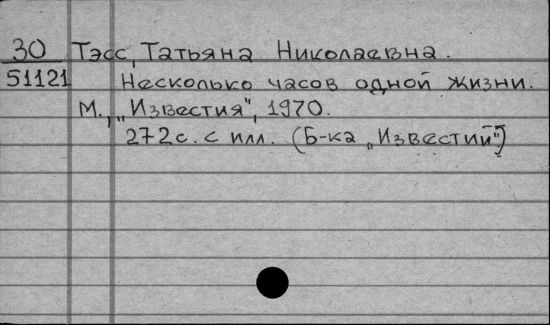 30 Тэсс, Татьяна Николаевна.
51121 Несколько часов одной жизни.
М., „Известия", 1970.
272с. с илл. (Б-ка „Известий")